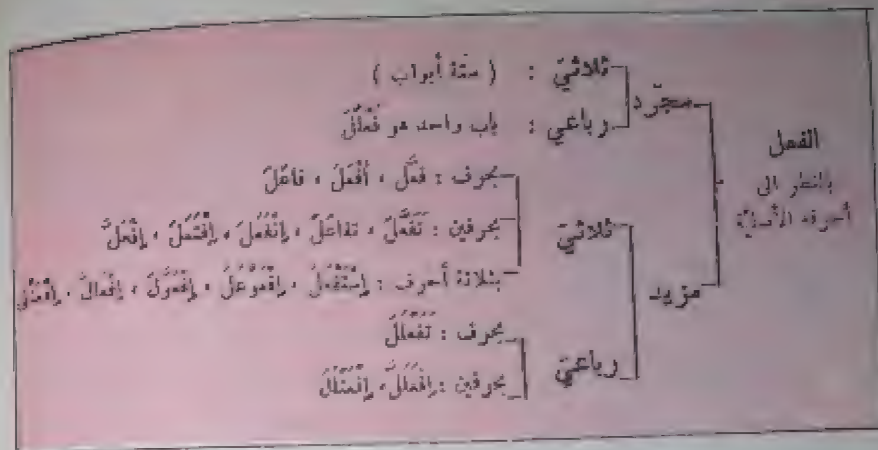 الفعل
بالنظر الى
أحرفه الأصليّة
مجرّد
ثلاثيّ : ( ستّة أبواب )
رباعي : باب واحد هو فَعْلَلَ
مزيد
ثلاثيّ
بحرف : فَعَّلَ ، أَفْعَلَ ، فاعَلَ
بحرفين : تَفَعَّلَ ، تفاعَلَ ، إِنْفَعَلَ ، إِفْتَعَلَ ، إِفْعَلَّ
بثلاثة أحرف : إِسْتَفْعَلَ ، إِفْعَوْعَلَ ، إِفْعَوَّلَ ، إِفْعَالَّ ،
رباعيّ
بحرف : تَفَعْلَلَ
بحرفين : إِفْعَلَلَّ ، إِفْعَنْلَلَ